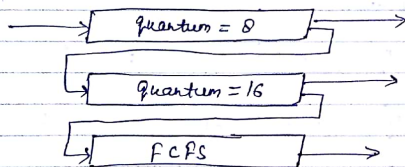 quantum = 8
quantum = 16
FCFS